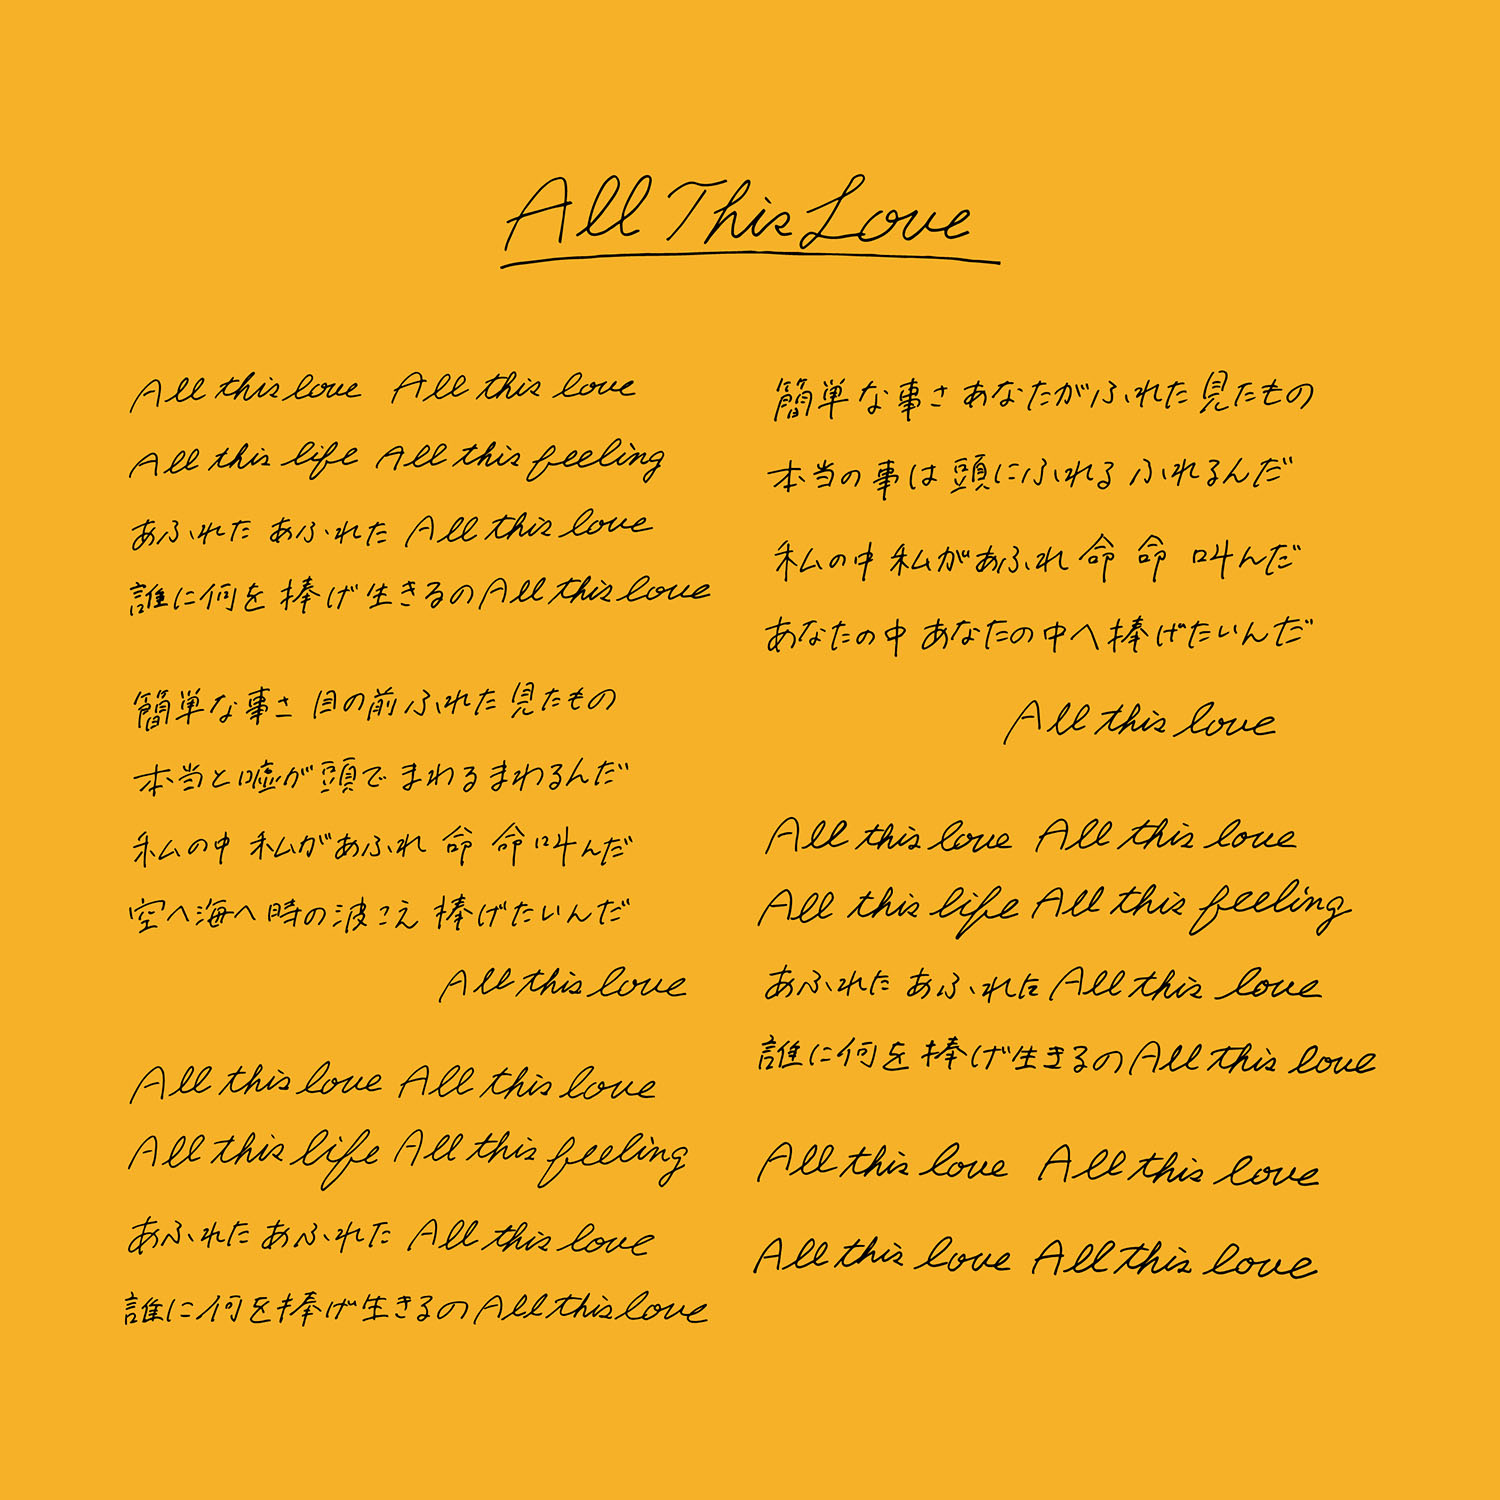 All This Love
All this love All this love
All this life All this feeling
あふれた あふれた All this love
誰に何を 捧げ生きるの All this love
簡単な事さ 目の前ふれた 見たもの
本当と嘘が頭で まわる まわるんだ
私の中 私があふれ 命 命 叫んだ
空へ海へ 時の波こえ 捧げたいんだ
All this love
All this love All this love
All this life All this feeling
あふれた あふれた All this love
誰に何を捧げ生きるの All this love
簡単な事さ あなたがふれた 見たもの
本当の事は 頭にふれる ふれるんだ
私の中 私があふれ 命 命 叫んだ
あなたの中 あなたの中へ捧げたいんだ
All this love
All this love All this love
All this life All this feeling
あふれた あふれた All this love
誰に何を捧げ生きるの All this love
All this love All this love
All this love All this love